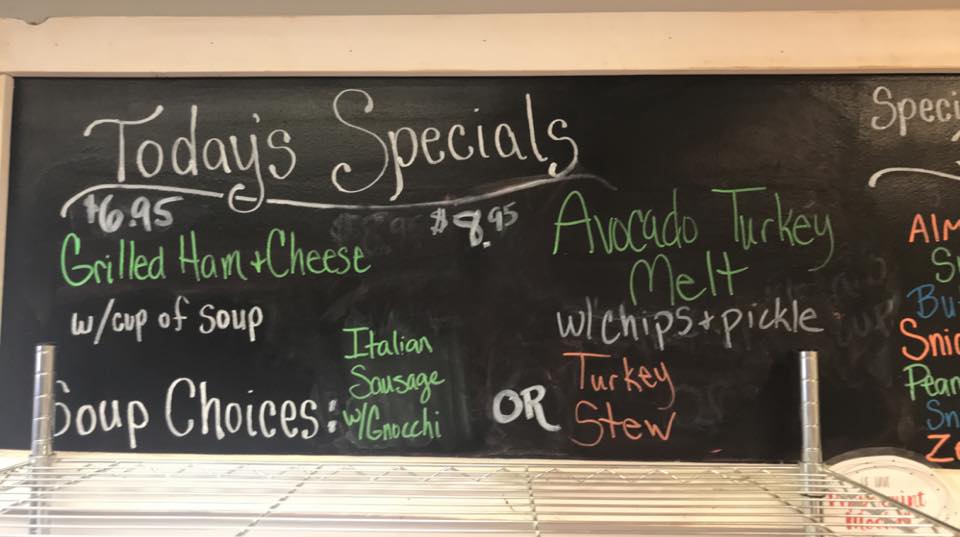 Today's Specials
$6.95
Grilled Ham + Cheese
w/cup of soup
$8.95
Avocado Turkey
Melt
w/chips + pickle
Soup Choices:
Italian
Sausage
w/Gnocchi
OR
Turkey
Stew
Speci
Alm
S
Bu
Snic
Pean
Sn
Z